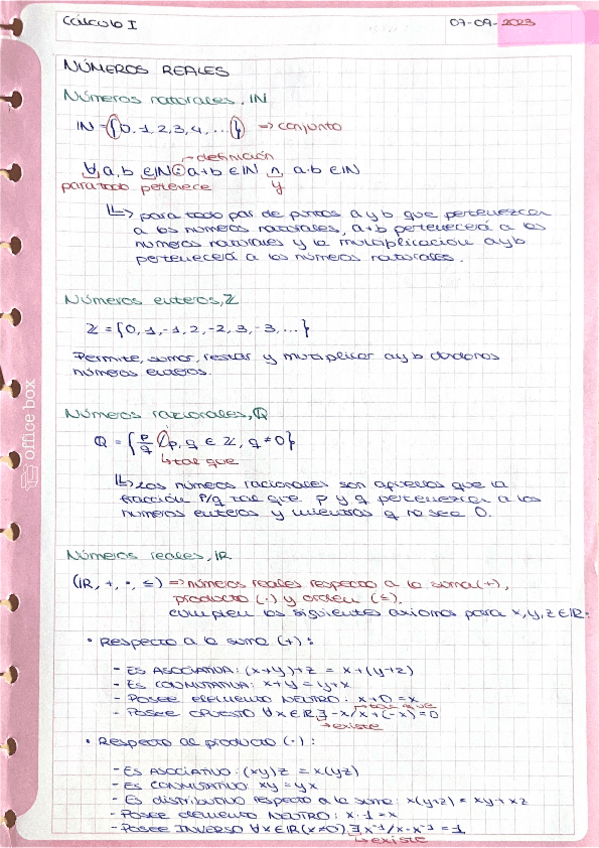 Cálculo I 07-09-2023
NÚMEROS REALES
Números naturales, ℕ
ℕ = {0, 1, 2, 3, 4, ...} => conjunto
definición
∀ a, b ∈ ℕ : a+b ∈ ℕ ∧ a·b ∈ ℕ
para todo pertenece y
↳> para todo par de puntos a y b que pertenezcan
a los números naturales, a+b pertenecerá a los
números naturales y la multiplicación a y b
pertenecerá a los números naturales.
Números enteros, ℤ
ℤ = {0, 1, -1, 2, -2, 3, -3, ...}
Permite, sumar, restar y multiplicar a y b dándonos
números enteros.
Números racionales, ℚ
ℚ = {p/q / p, q ∈ ℤ, q ≠ 0}
↳ tal que
↳> Los números racionales son aquellos que la
fracción P/q tal que p y q pertenezcan a los
números enteros y mientras q no sea 0.
Números reales, ℝ
(ℝ, +, ·, ≤) => números reales respecto a la suma (+),
producto (·) y orden (≤).
cumplen los siguientes axiomas para x, y, z ∈ ℝ:
• Respecto a la suma (+):
- ES ASOCIATIVA: (x+y)+z = x+(y+z)
- ES CONMUTATIVA: x+y = y+x
- POSEE ELEMENTO NEUTRO: x+0 = x
tal que
- POSEE OPUESTO ∀x∈ℝ ∃ -x / x+(-x) = 0
↳ existe
• Respecto al producto (·):
- ES ASOCIATIVO: (xy)z = x(yz)
- ES CONMUTATIVO: xy = yx
- Es distributivo respecto a la suma: x(y+z) = xy + xz
- Posee elemento NEUTRO: x · 1 = x
- POSEE INVERSO ∀x∈ℝ (x≠0) ∃ x⁻¹ / x·x⁻¹ = 1
↳ existe
office box